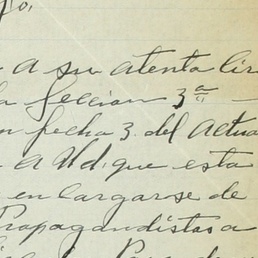 go,
a su atenta Cir
la seccion 3ª —
n fecha 3. del Actua
a Ud. que esta
en largarose de
Propagandistas a